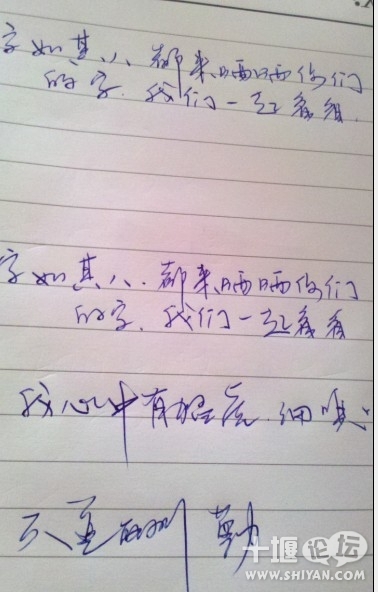 字如其人,都来晒晒你们
的字.我们一起看看.
字如其人.都来晒晒你们
的字.我们一起看看
我心中有猛虎.细嗅
天道酬勤
十堰论坛
WWW.SHIYAN.COM